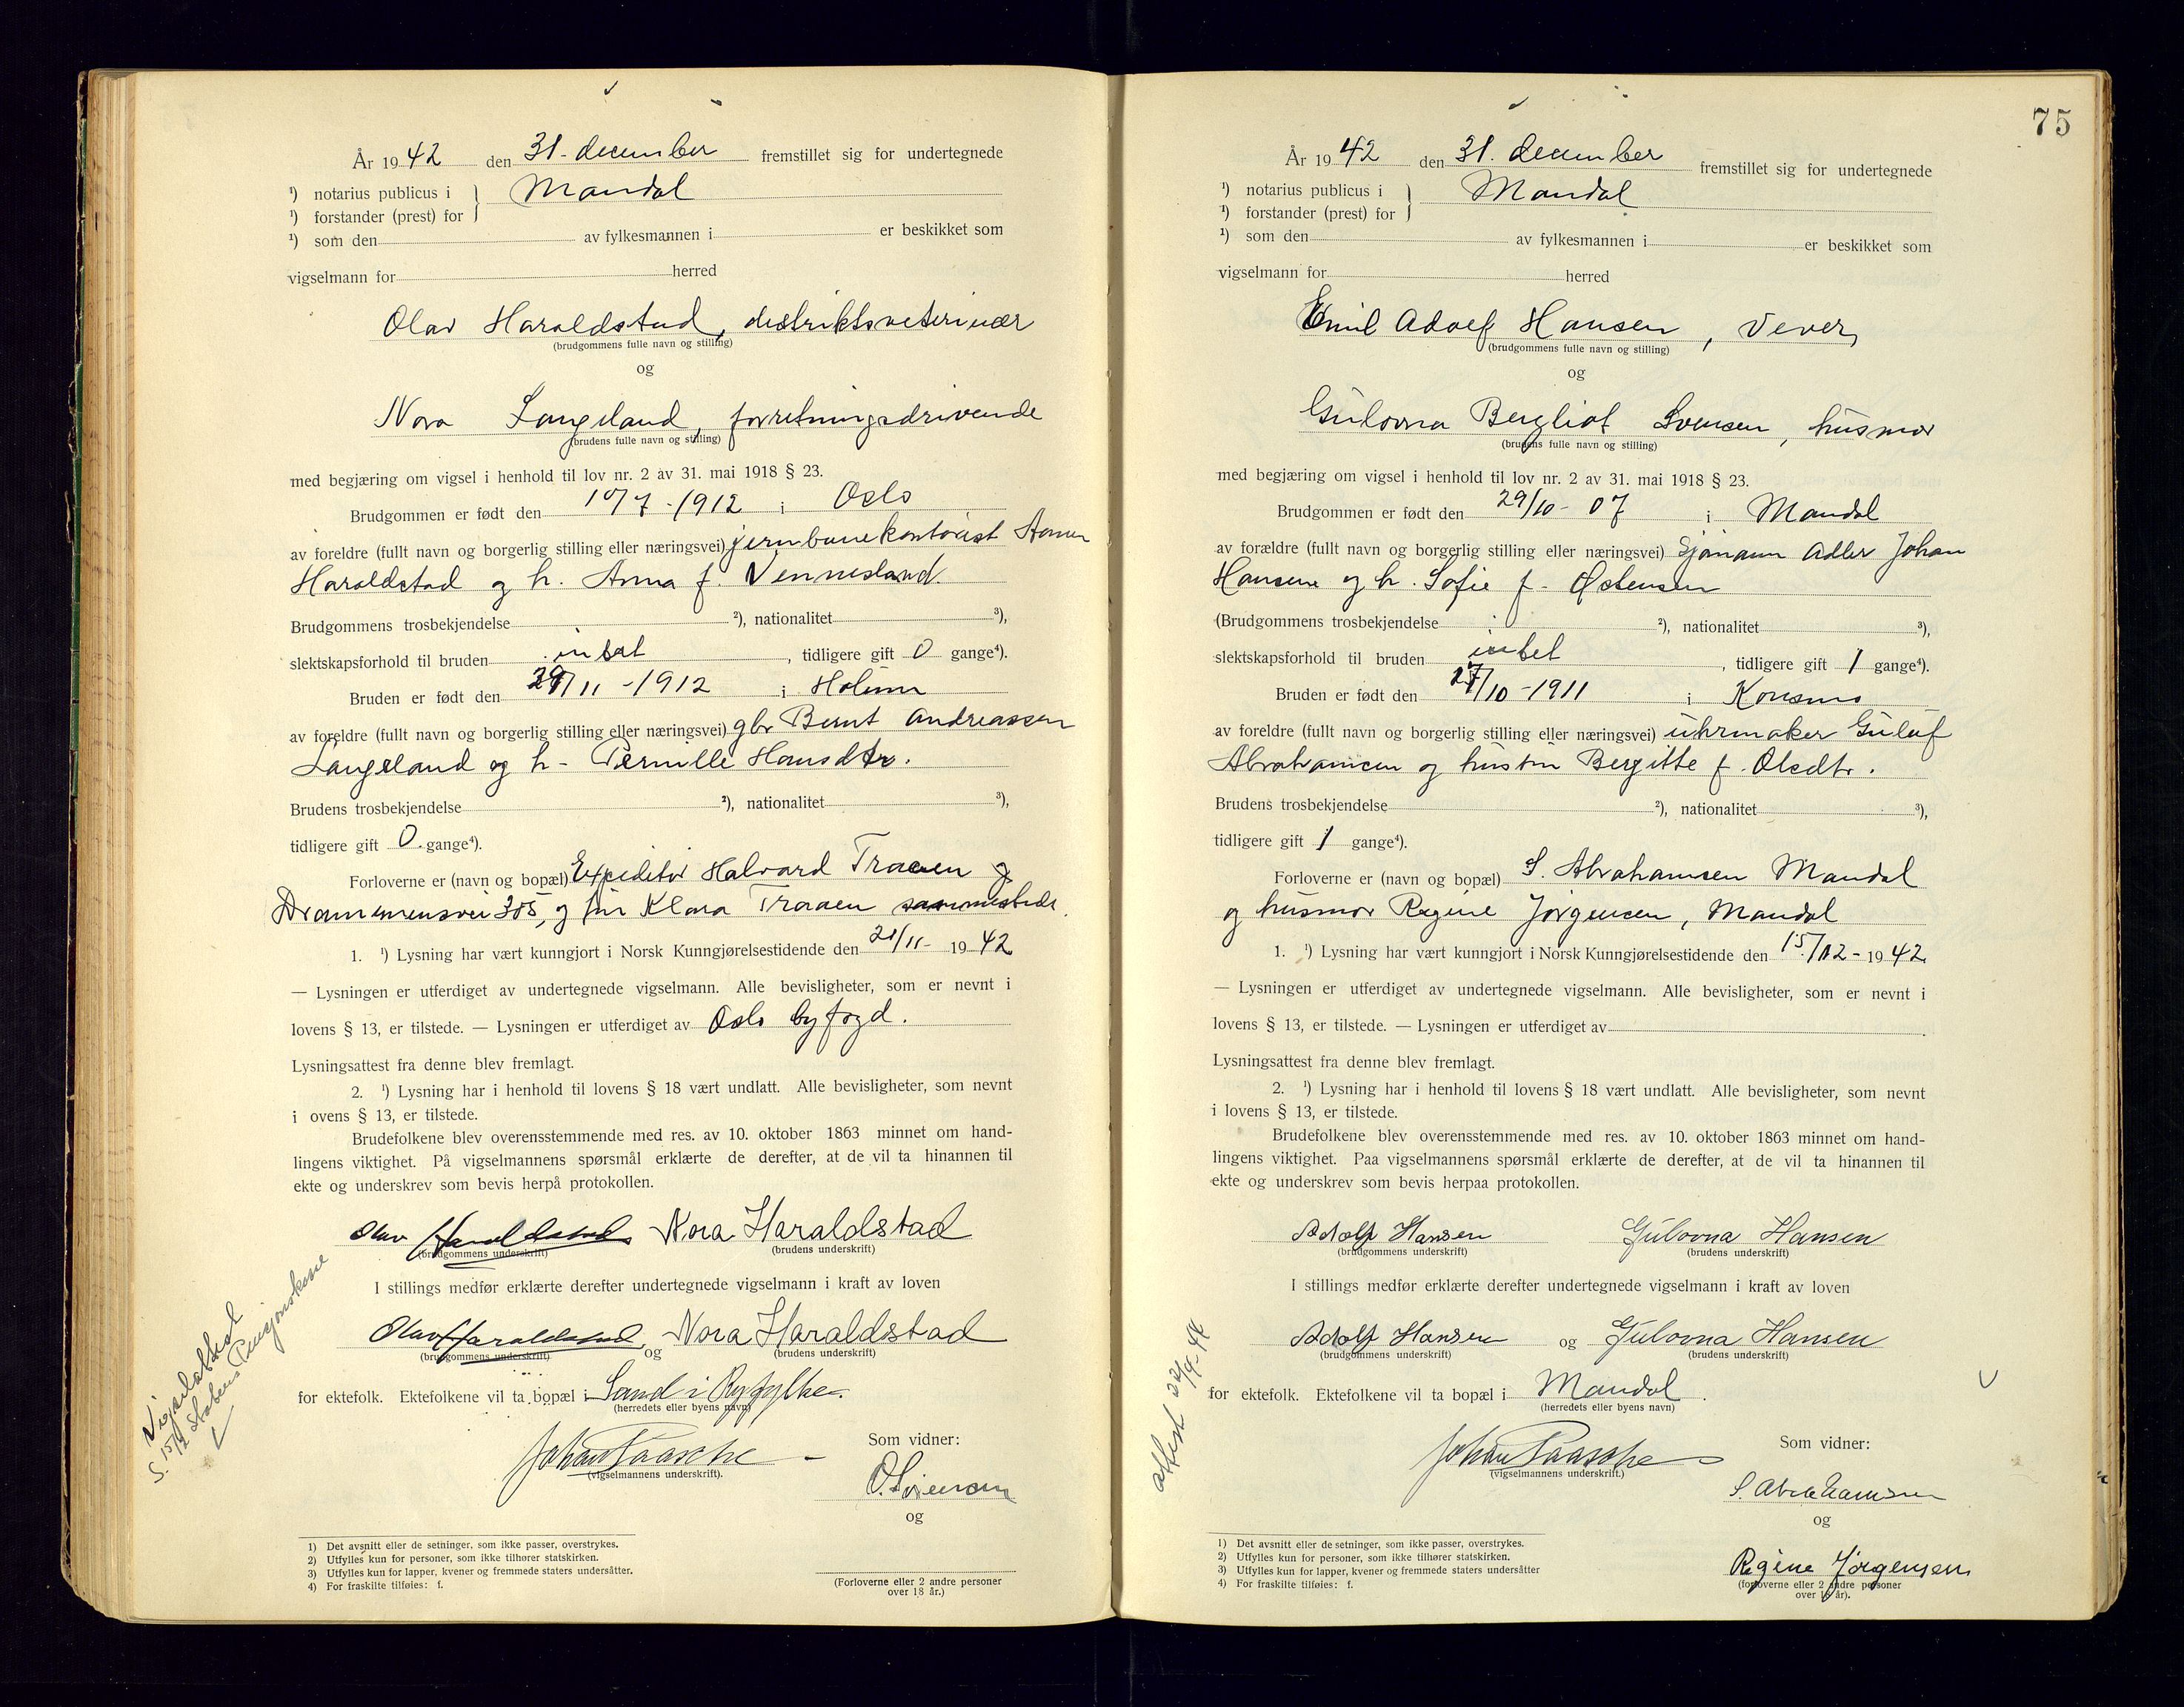 År 1942 den 31. december fremstillet sig for undertegnede
¹) notarius publicus i } Mandal
¹) forstander (prest) for
¹) som den av fylkesmannen i er beskikket som
vigselmann for herred
Olav Haraldstad, distriktsveterinær
(brudgommens fulle navn og stilling)
og
Nora Langeland, forretningsdrivende
(brudens fulle navn og stilling)
med begjæring om vigsel i henhold til lov nr. 2 av 31. mai 1918 § 23.
Brudgommen er født den 10/7 - 1912 i Oslo
av foreldre (fullt navn og borgerlig stilling eller næringsvei) jernbanekontorist
Haraldstad og h. Anna f. Vennesland.
Brudgommens trosbekjendelse ²), nationalitet ³),
slektskapsforhold til bruden intet, tidligere gift 0 gange⁴).
Bruden er født den /11 - 1912 i Holum
av foreldre (fullt navn og borgerlig stilling eller næringsvei) gbr Bernt Andreassen
Langeland og h- Pernille Hansdtr.
Brudens trosbekjendelse ²), nationalitet ³),
tidligere gift 0. gange⁴).
Forloverne er (navn og bopæl) Expeditør Halvard Traaen
Drammensvei 305, og fru Klara Traaen sammesteds.
1. ¹) Lysning har vært kunngjort i Norsk Kunngjørelsestidende den 21/11- 1942
— Lysningen er utferdiget av undertegnede vigselmann. Alle bevisligheter, som er nevnt i
lovens § 13, er tilstede. — Lysningen er utferdiget av Oslo byfogd.
Lysningsattest fra denne blev fremlagt.
2. ¹) Lysning har i henhold til lovens § 18 vært undlatt. Alle bevisligheter, som nevnt
i ovens § 13, er tilstede.
Brudefolkene blev overensstemmende med res. av 10. oktober 1863 minnet om hand-
lingens viktighet. På vigselmannens spørsmål erklærte de derefter, at de vil ta hinannen til
ekte og underskrev som bevis herpå protokollen.
Olav Haraldstad Nora Haraldstad
(brudgommens underskrift) (brudens underskrift)
I stillings medfør erklærte derefter undertegnede vigselmann i kraft av loven
Olav Haraldstad og Nora Haraldstad
(brudgommens underskrift) (brudens underskrift)
for ektefolk. Ektefolkene vil ta bopæl i Sand i Ryfylke.
(herredets eller byens navn)
Johan Paasche
(vigselmannens underskrift).
Som vidner:
O. Sørensen
og
(Forloverne eller 2 andre personer
over 18 år.)
1) Det avsnitt eller de setninger, som ikke passer, overstrykes.
2) Utfylles kun for personer, som ikke tilhører statskirken.
3) Utfylles kun for lapper, kvener og fremmede staters undersåtter.
4) For fraskilte tilføies: f.
Vigselattest
S. 15/12 Statens Pensjonskasse
75
År 1942 den 31. december fremstillet sig for undertegnede
¹) notarius publicus i } Mandal
¹) forstander (prest) for
¹) som den av fylkesmannen i er beskikket som
vigselmann for herred
Emil Adolf Hansen, vever,
(brudgommens fulle navn og stilling)
og
Gulovna Bergliot Svensen, husmor
(brudens fulle navn og stilling)
med begjæring om vigsel i henhold til lov nr. 2 av 31. mai 1918 § 23.
Brudgommen er født den 29/10 - 07 i Mandal
av forældre (fullt navn og borgerlig stilling eller næringsvei) sjømann Adler Johan
Hansen og h. Sofie f. Østensen
(Brudgommens trosbekjendelse ²), nationalitet ³),
slektskapsforhold til bruden intet, tidligere gift 1 gange⁴).
Bruden er født den 27/10 - 1911 i Konsmo
av foreldre (fullt navn og borgerlig stilling eller næringsvei) uhrmaker Guluf
Abrahamsen og hustru Bergitte f. Olsdtr.
Brudens trosbekjendelse ²), nationalitet ³),
tidligere gift 1 gange⁴).
Forloverne er (navn og bopæl) S. Abrahamsen Mandal
og husmor Regine Jørgensen, Mandal
1. ¹) Lysning har vært kunngjort i Norsk Kunngjørelsestidende den 15/12 - 1942.
— Lysningen er utferdiget av undertegnede vigselmann. Alle bevisligheter, som er nevnt i
lovens § 13, er tilstede. — Lysningen er utferdiget av .
Lysningsattest fra denne blev fremlagt.
2. ¹) Lysning har i henhold til lovens § 18 vært undlatt. Alle bevisligheter, som nevnt
i lovens § 13, er tilstede.
Brudefolkene blev overensstemmende med res. av 10. oktober 1863 minnet om hand-
lingens viktighet. Paa vigselmannens spørsmål erklærte de derefter, at de vil ta hinannen til
ekte og underskrev som bevis herpaa protokollen.
Adolf Hansen Gulovna Hansen
(brudgommens underskrift) (brudens underskrift)
I stillings medfør erklærte derefter undertegnede vigselmann i kraft av loven
Adolf Hansen og Gulovna Hansen
(brudgommens underskrift) (brudens underskrift)
for ektefolk. Ektefolkene vil ta bopæl i Mandal.
(herredets eller byens navn)
Johan Paasche
(vigselmannens underskrift.)
Som vidner:
S. Abrahamsen
og
Regine Jørgensen
(forloverne eller 2 andre personer
over 18 år).
1) Det avsnitt eller de setninger, som ikke passer, overstrykes.
2) Utfylles kun for personer, som ikke tilhører statskirken.
3) Utfylles kun for lapper, kvener og fremmede staters undersåtter
4) For fraskilte tilføies: f.
attest 22/9-44